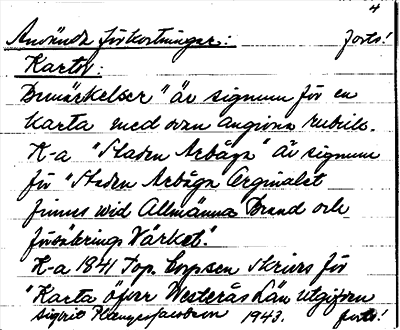 4
Använda förkortningar: forts!
Kartor:
Bemärkelser" är signum för en
karta med ovan angivna rubrik.
K-a "Staden Arboga" är signum
för "Staden Arboga Orginalet
finnes wid Allmänna Brand och
försäkrings Värket."
K-a 1841 Top. corpsen skrivs för
"Karta öfver Westerås Län utgifven
Sigrid 1943. forts!